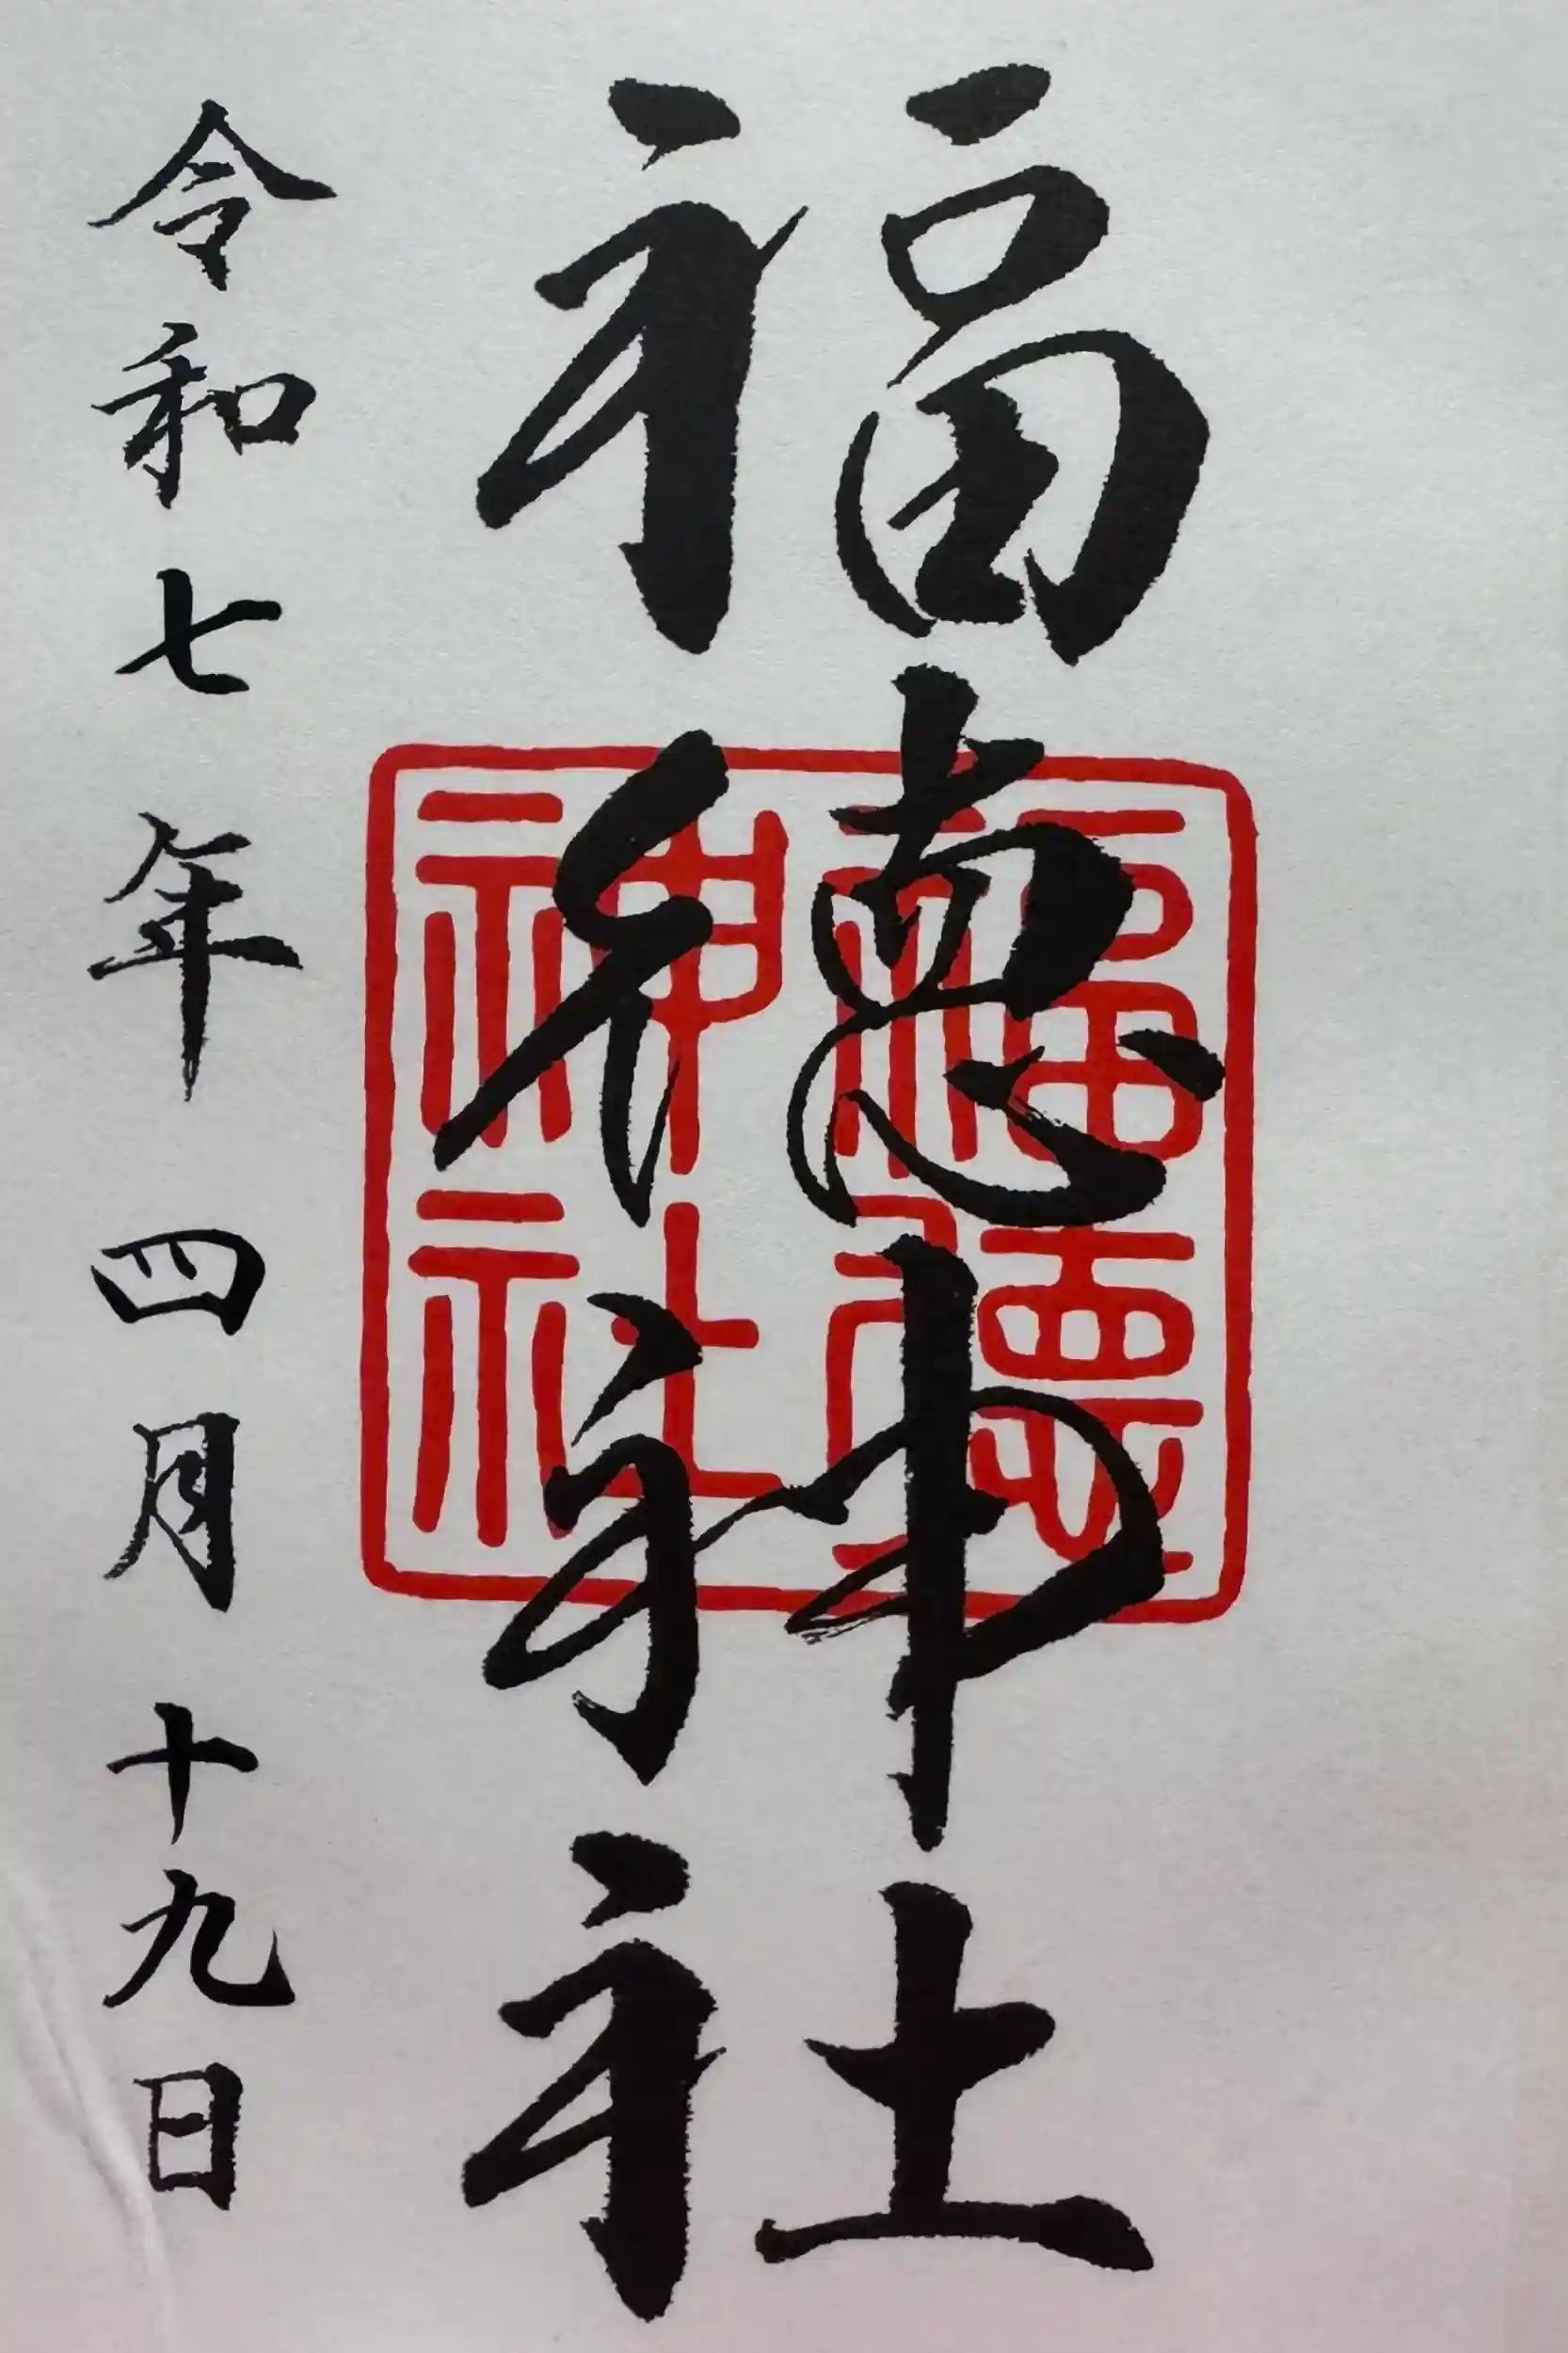 福徳神社
福徳神社
令和七年四月十九日